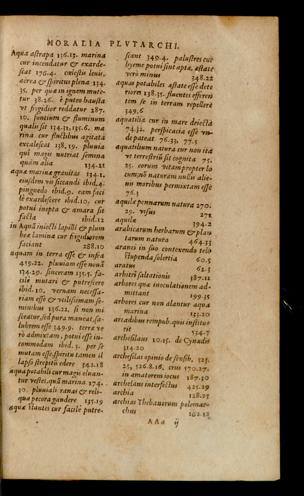 MORALIA PLVTARCHI.
Aqua astrapa 136.13. marina
cur incendatur & exarde-
scat 176.4. cœlestis leuis,
aërea & spiritus plena 134.
35. per qua in ignem mute-
tur 38.26. è puteo hausta
vt frigidior reddatur 287.
10. fontium & fluminum
qualis sit 134.31,135.6. ma
rina cur fluctibus agitata
excalescat 138.19. pluuia
cur magis nutriat semina
quàm alia 134.21
aquæ marinæ grauitas 134.1.
eiusdem vis siccandi ibid.4.
pinguedo ibid.9. eam faci
lè exardescere ibid.10. cur
potui inepta & amara sit
facta ibid.12
in Aquã iniecti lapilli & plum
beæ laminæ cur frigidiorem
faciant 288.10
aquam in terra esse & infra
415.22. pluuiam esse nouã
134.29. sinceram 135.5. fa-
cile mutari & putrescere
ibid.10. vernam necessa-
riam esse & vtilissimam se-
minibus 136.22. si non mi
sceatur, sed pura maneat, sa-
lubrem esse 349.9. terra ve
rò admixtam, potui esse in-
commodam ibid.5. per se
mutam esse, spiritu tamen il
lapso strepitũ edere 342.18
aqua potabili cur magis eluan-
tur vestes, quã marina 174.
20. pluuiali ranas & reli-
qua pecora gaudere 135.19
aquæ stantes cur facilè putre-
scant 349.4. palustres cur
hyeme potui sint apta, æstate
verò minus 348.22
aquas potabiles æstate esse dete
riores 138.35. fluentes efferves
tem se in terram repellere
349.6
aquatilia cur in mare deiectà
74.32. perspicacia esse vn-
de pateat 76.33. 77.5
aquatilium natura cur non ita
vt terrestriũ sit cognita 75.
25. eorum vitam propter lo
corum naturam nullis alie-
nis moribus permixtam esse
76.1
aquilæ pennarum natura 270.
29. visus 271
aquilo 394.2
arabicarum herbarum & plan
tarum natura 464.35
aranei in suo contexendo telo
stupenda solertia 60.5
aratus 62.5
arbitrii saltationis 387.11
arbores quæ inoculationem ad-
mittant 199.35
arbores cur non alantur aqua
marina 133.20
arcadibus reimpub. quis institue
rit 534.7
archesilaus 10.15. de Cynadis
314.20
archesilai opinio de sensib. 525.
25, 526.8.16, eius 570.27.
in amatorem iocus 187.30
archelaus interfectus 425.29
archia 128.25
archias Thebanorum polemar-
chus 102.12
AAa ij